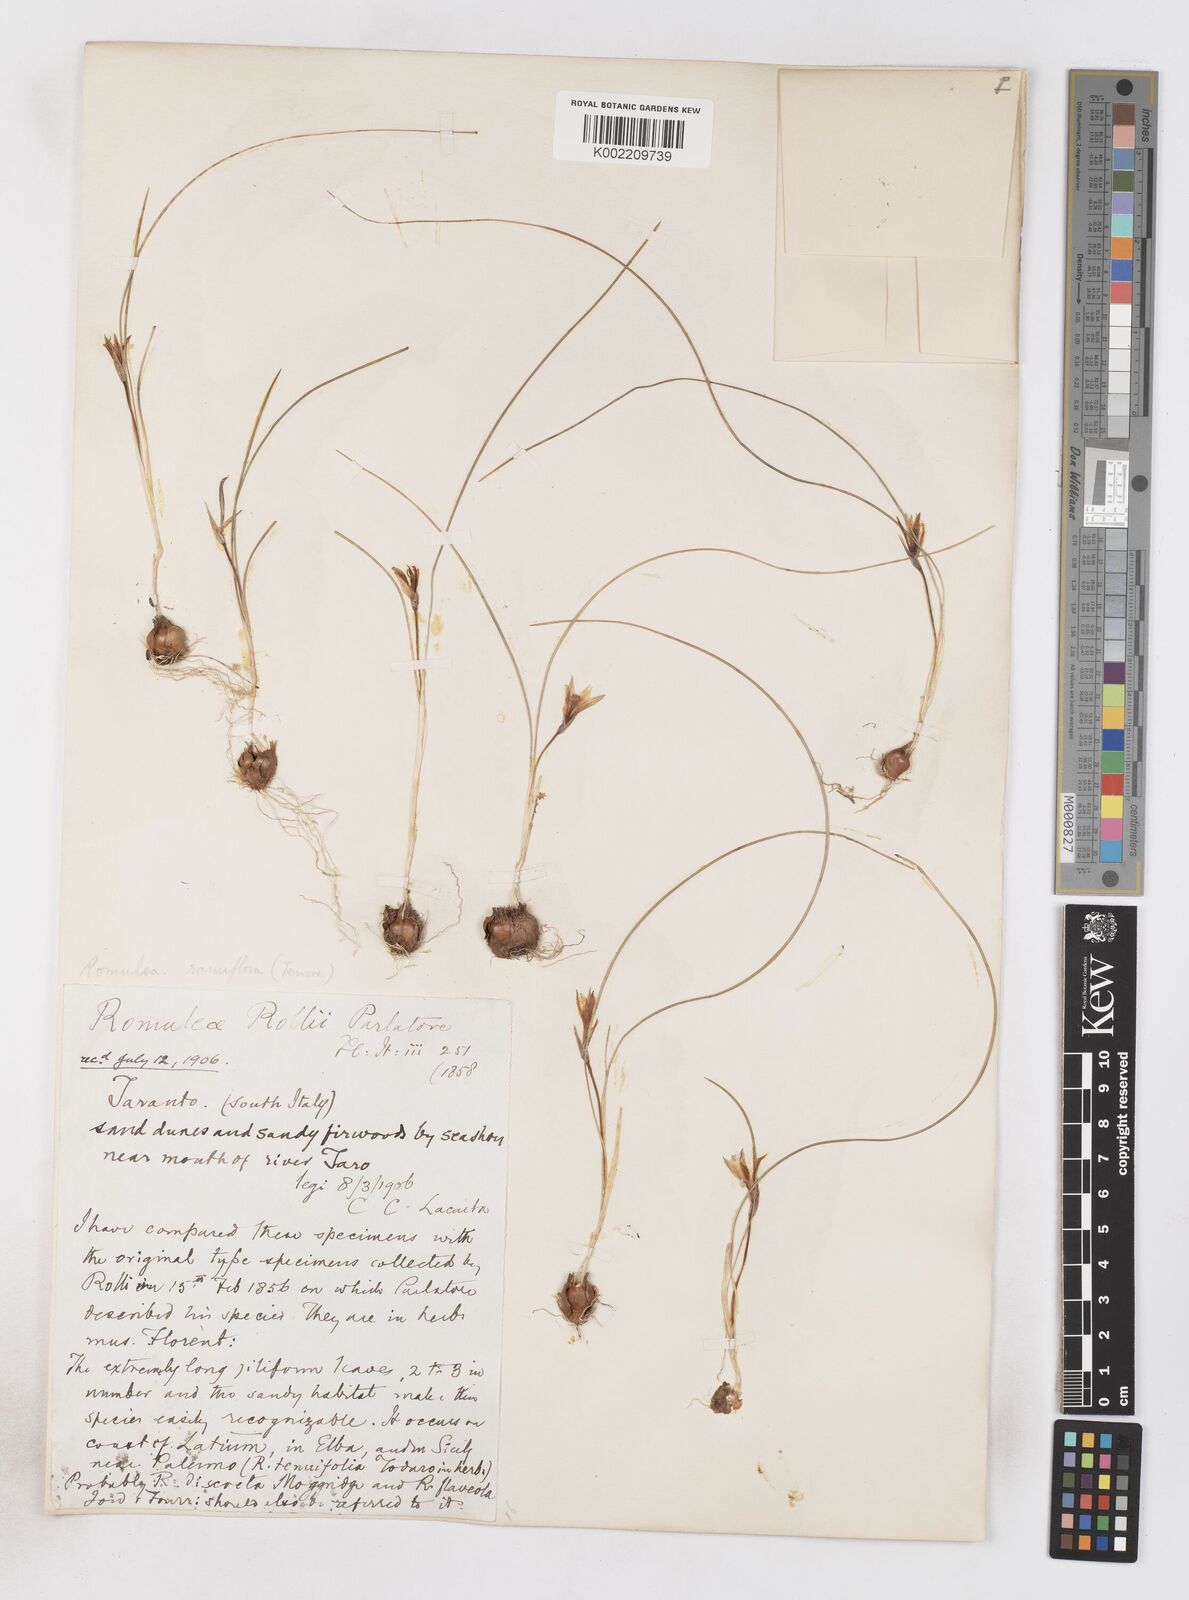 ROYAL BOTANIC GARDENS KEW
K002209739
Romulea ramiflora (Tenore)
Romulea Rollii Parlatore
Fl: It: iii 251
(1858
rec.d July 12, 1906.
Taranto. (South Italy)
sand dunes and sandy firwoods by seashore
near mouth of river Taro
legi 8/3/1906
C. C. Lacaita
I have compared these specimens with
the original type specimens collected by
Rolli on 15th Feb 1856 on which Parlatore
described his species. They are in herb:
mus. Florent:
The extremely long filiform leaves, 2 to 3 in
number and the sandy habitat make this
species easily recognizable. It occurs on
coast of Latium, in Elba, and in Sicily
near Palermo (R. tenuifolia Todaro in herb:)
Probably R. discreta Moggridge and R. flaveola
Jord & Fourr: should also be referred to it.
inches
Density
Don Williams
M000827
centimeters
Kew
Royal Botanic Gardens
copyright reserved
0 1 2 3 4 5 6 7 8 9 10
cm